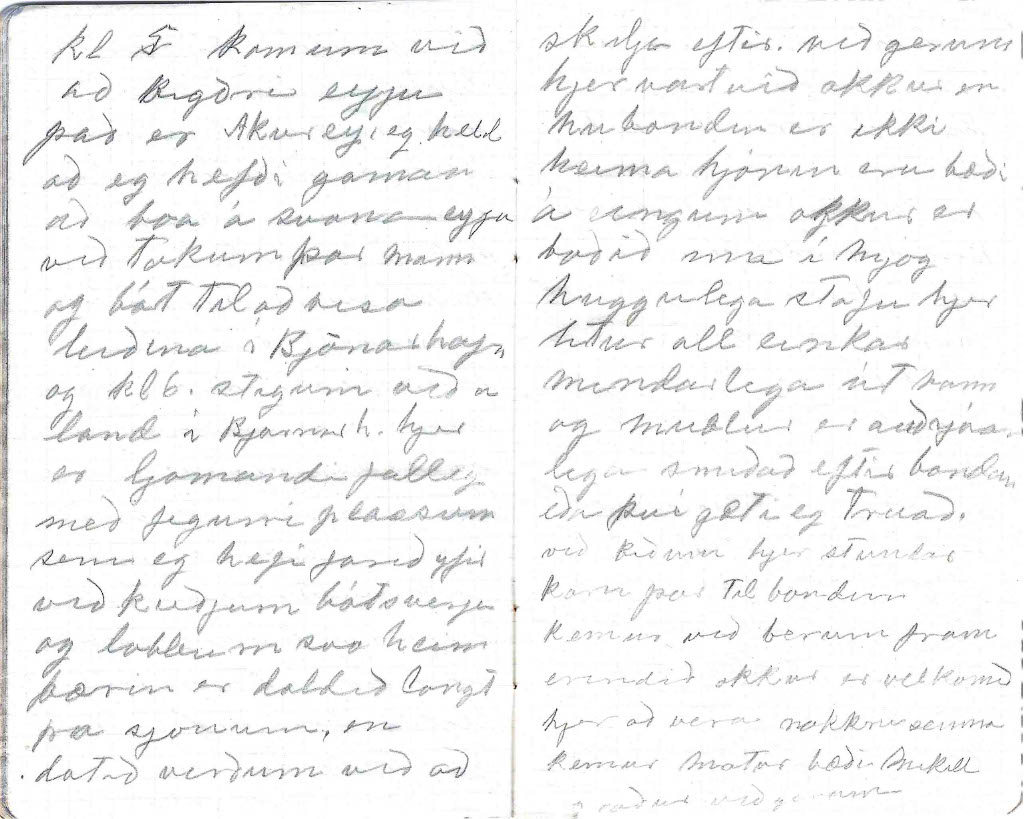 kl 5 komum við
að Bigðri eyju
það er Akurey, eg held
að eg hefði gaman
að boa á svona eyju
við tokum þar mann
og bát til að visa
leiðina í Bjönarhafn
og kl 6. stigum við a
land í Bjarnarh. hjer
er ljomandi falleg
með fegurri plássum
sem eg hefi farið yfir
við kveðjum bátsverja
og lobbum svo heim
bærin er dalitið langt
fra sjonum, en
dotið verðum við að
skilja eftir. við gerum
hjer vart við okkur en
hubondin er ekki
heima hjónin eru bæði
á okkur er
boðið inn i mjög
huggulega stofu hjer
litur all einkar
mindarlega út rann
og mublur er auðsjáan
lega smiðað eftir bondan
eða því gæti eg truað.
við biðum hjer stundar
korn þar til bondin
kemur við berum fram
erindið okkur er velkomið
hjer að vera nokkru seinna
kemur matur bæði mikill
við gerum